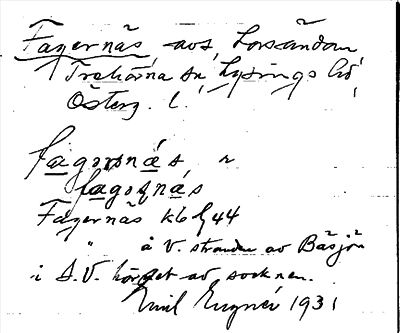 Fagernäs, avs, Lorsåndom
Trehörna sn, Lysings hd
Österg. l.
fagǝrnás r
fágoṇás
Fagernäs kbl 44
" å V. stranden av Båsjön
i S.V. hörnet av socknen.
Emil Engnér 1931